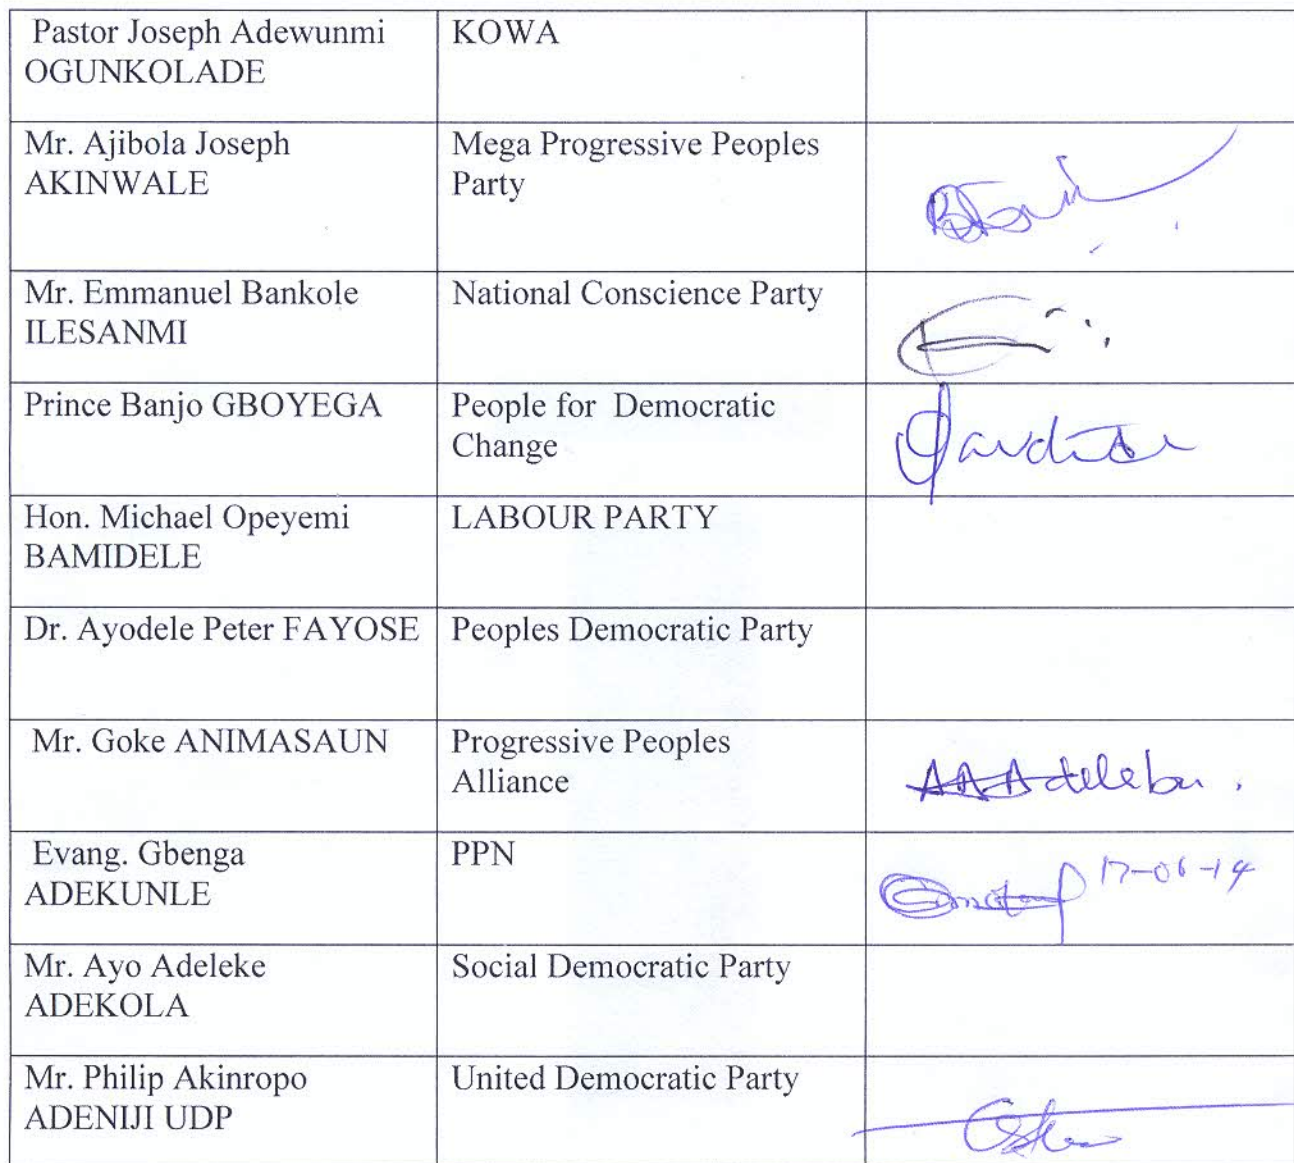 Pastor Joseph Adewunmi
OGUNKOLADE
KOWA
Mr. Ajibola Joseph
AKINWALE
Mega Progressive Peoples
Party
Mr. Emmanuel Bankole
ILESANMI
National Conscience Party
Prince Banjo GBOYEGA
People for Democratic
Change
Hon. Michael Opeyemi
BAMIDELE
LABOUR PARTY
Dr. Ayodele Peter FAYOSE
Peoples Democratic Party
Mr. Goke ANIMASAUN
Progressive Peoples
Alliance
Evang. Gbenga
ADEKUNLE
PPN
17-06-14
Mr. Ayo Adeleke
ADEKOLA
Social Democratic Party
Mr. Philip Akinropo
ADENIJI UDP
United Democratic Party